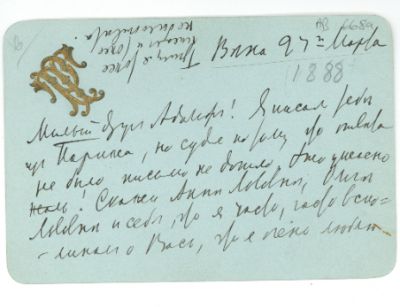 Вѣна 27 Марта
1888
Милый друг Адольф! Я писал тебе
из Парижа, но судя потому что ответа
не было, письмо не дошло. Это ужасно
жаль! Скажи Анне Львовне, Ольге
Львовне и себе, что я часто, часто вспо-
-минаю о Вас, что я очень люблю